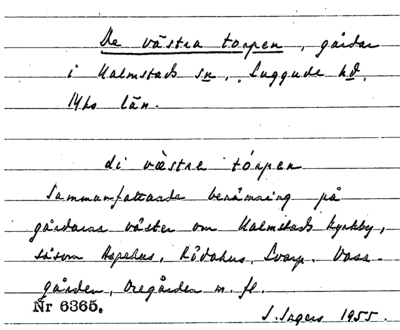 De västra torpen, gårdar
i Halmstads sn, Luggude hd,
Mhs län.
di västre tórpen
Sammanfattande benämning på
gårdarna väster om Halmstads kyrkby,
såsom Aspehus, Rödahus, Svarp. Vasa-
gården, Oregården m. fl.
Nr 6365.
S. Ingers 1955.